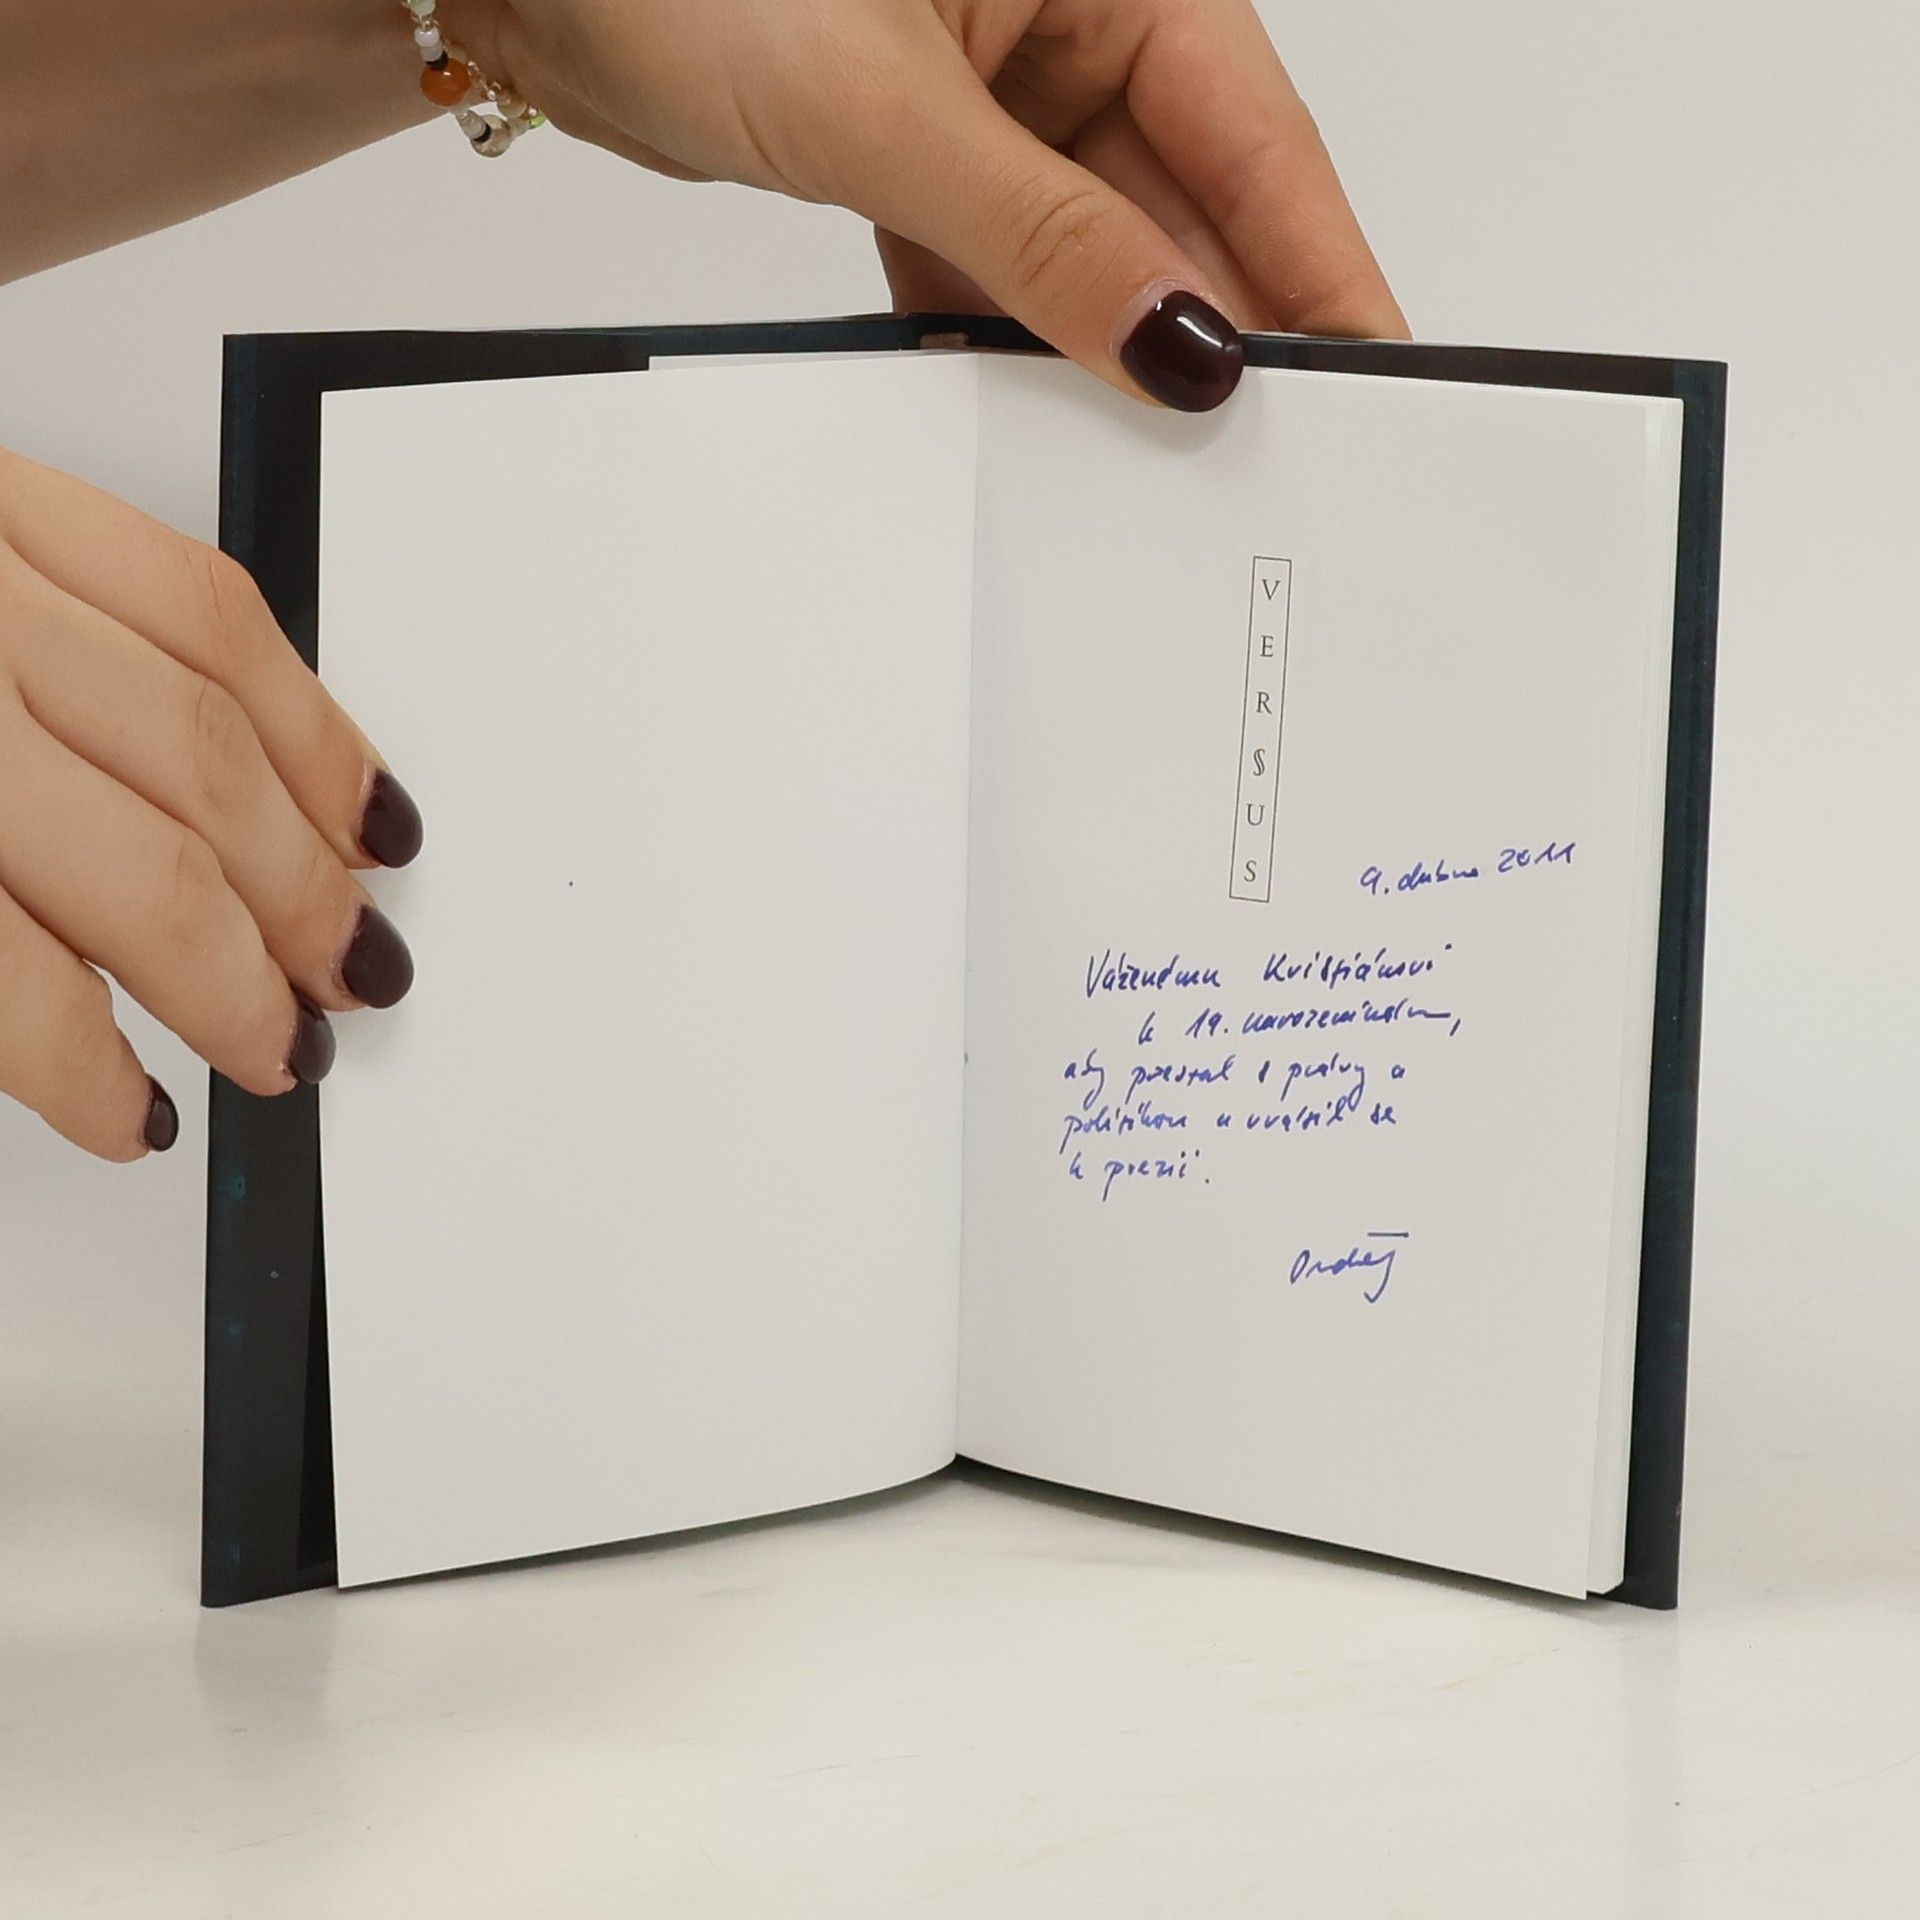 VERSUS
9. dubna 2011
Váženému Kristiánovi
k 19. narozeninám,
aby přestal s právy a
politikou a vrátil se
k poezii.
Ondřej